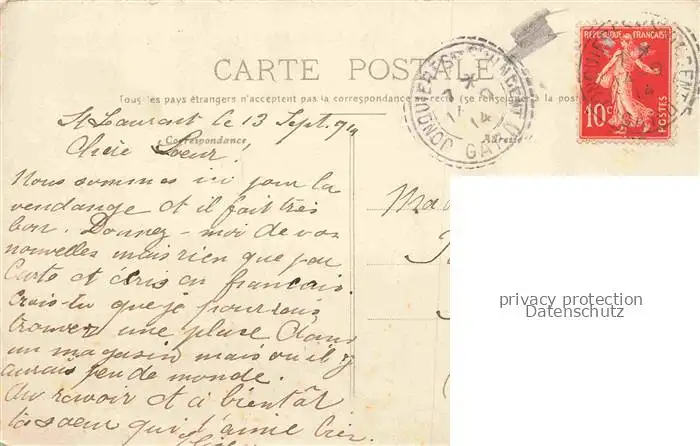 RÉPUBLIQUE FRANÇAISE
10c
POSTES
CARTE POSTALE
JONQUIERES-ST-VINCENT
GARD
Tous les pays étrangers n'acceptent pas la correspondance au recto (se renseigner à la poste
Correspondance
Adresse
St Laurent le 13 Sept. 14
Chère Soeur,
Nous sommes ici pour la
vendange et il fait très
bon. Donnez-moi de vos
nouvelles mais rien que par
Carte et écris en français.
Crois-tu que je pourrais
trouver une place dans
un magasin mais où il y
aurais peu de monde.
Au revoir et à bientôt
ta soeur qui t'aime bien
Ma
privacy protection
Datenschutz